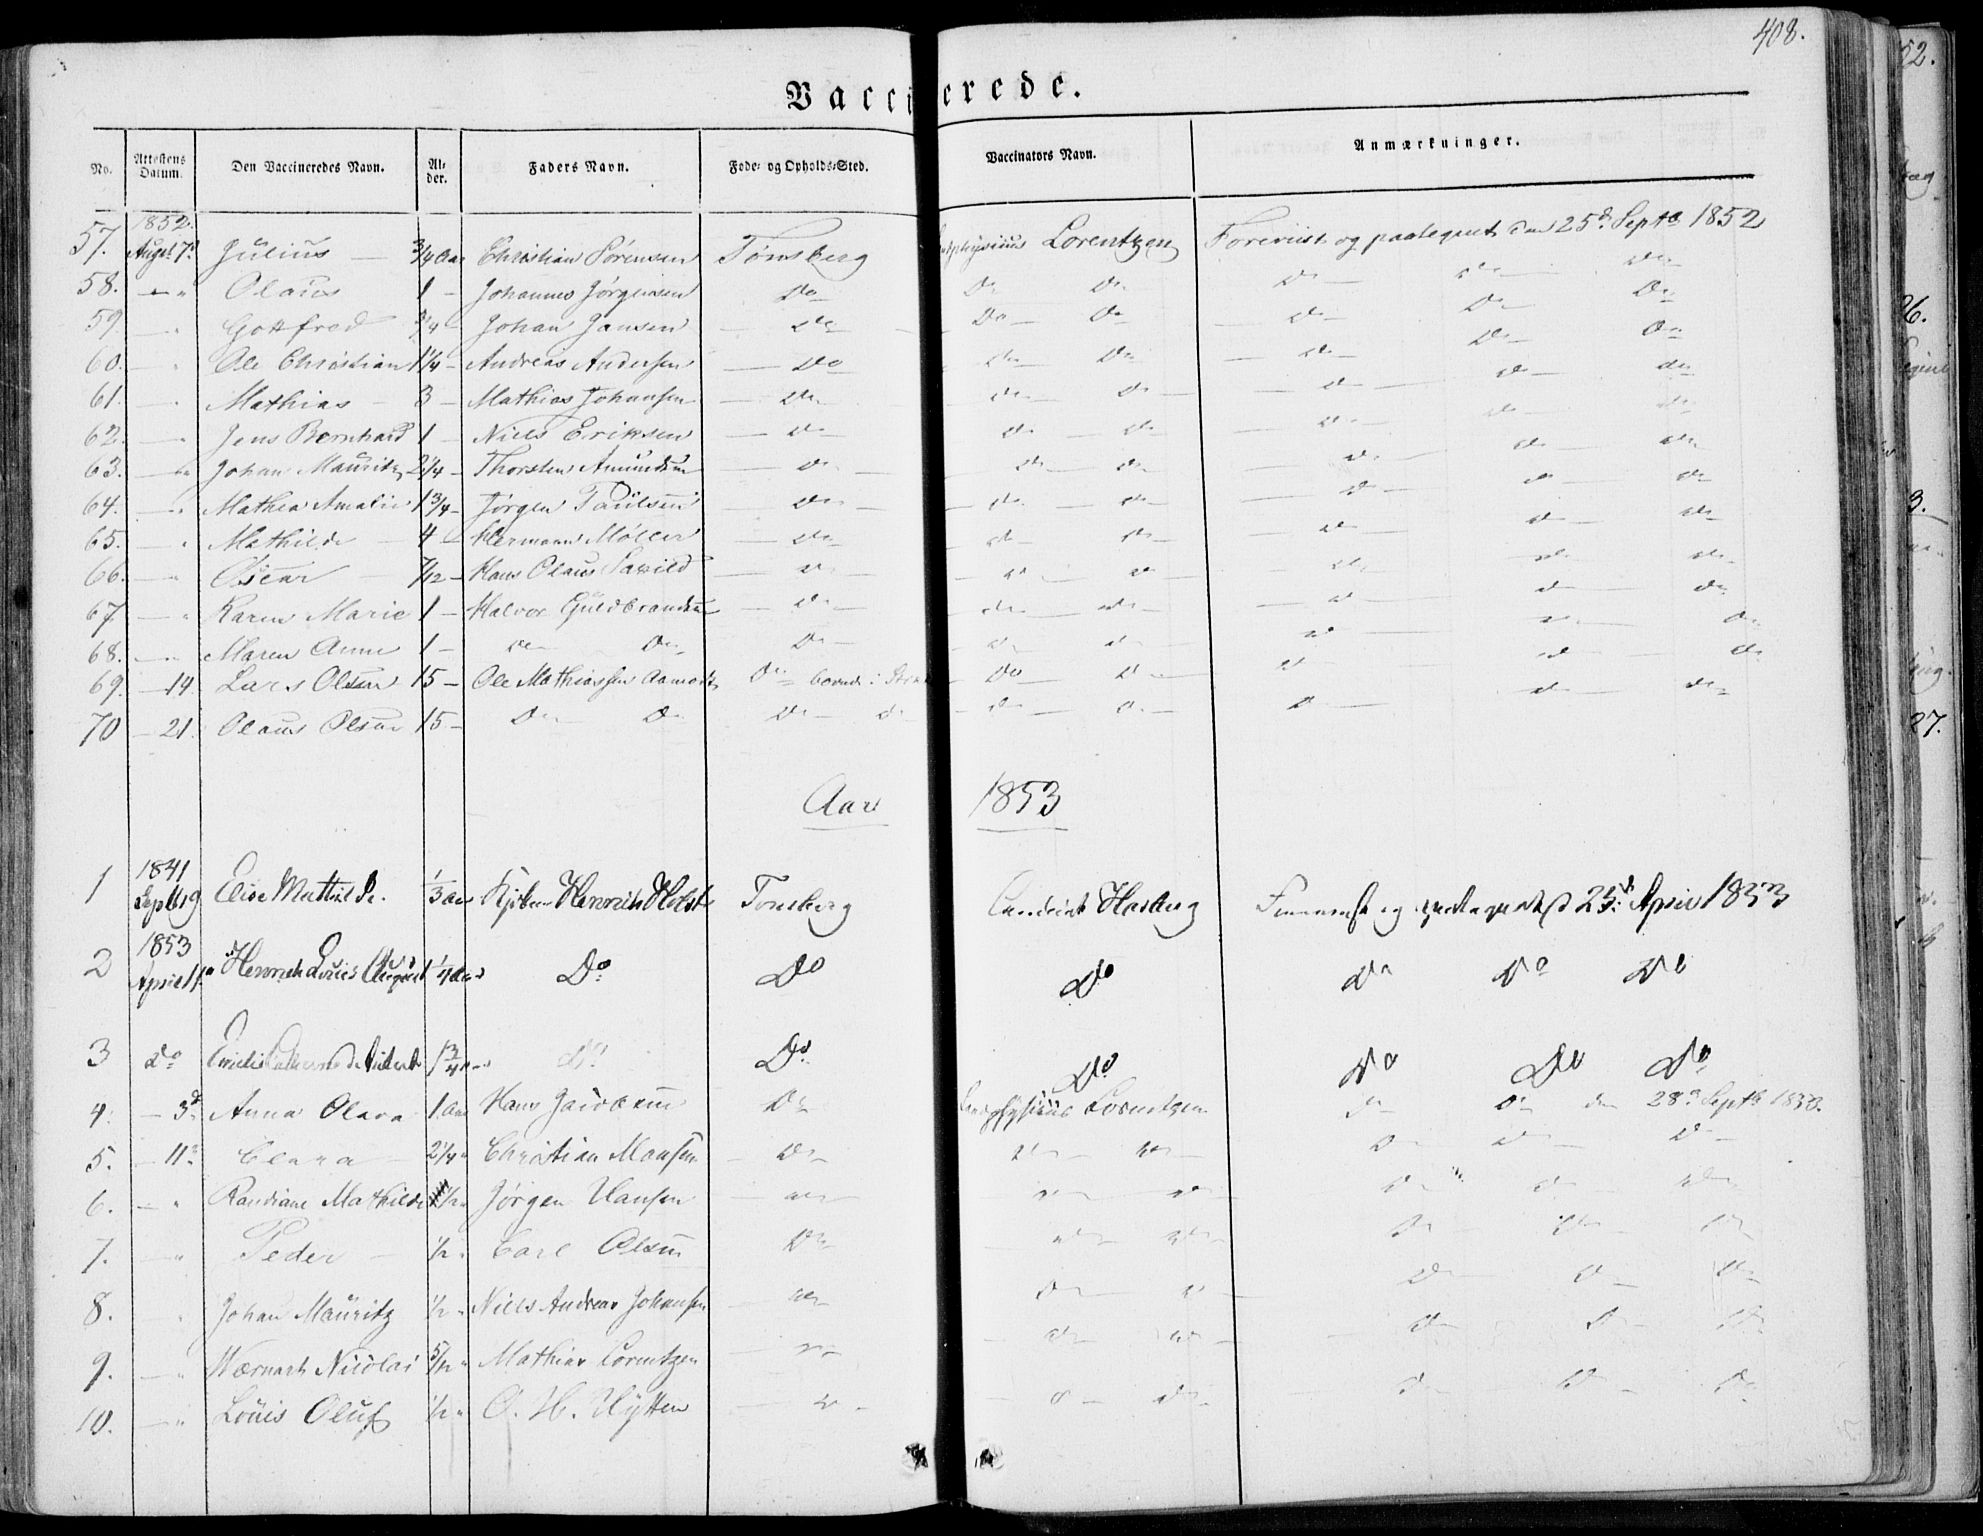 408.
Vaccinerede.
No. Attestens Datum. Den Vaccineredes Navn. Al-der. Faders Navn. Føde- og Opholds-Sted. Vaccinators Navn. Anmærkninger.
1852.
57. Augst 7d Julius — 3/4 Aar Christian Sørensen Tønsberg Landphysicus Lorentzen Foreviist og paategnet den 25d Septbr 1852
58. — " Olaus 1 — Johannes Jørgensen Do Do Do Do Do Do
59. — " Gottfred 3/4 — Johan Jansen — Do — Do — Do — Do — Do Do
60. — " Ole Christian 1 1/4 — Andreas Andersen — Do Do Do — Do — Do — Do
61. — " Mathias — 3 — Mathias Johansen — Do Do — Do — Do — Do — Do
62. — " Jens Bernhard 1 — Niels Eriksen — Do — Do — Do — Do — Do — Do
63. — " Johan Mauritz 2 1/4 — Thorsten Amundsen — Do — Do — Do — Do — Do — Do
64. — " Mathea Amalie 1 3/4 — Jørgen Paulsen Do — Do — Do — Do — Do — Do
65. — " Mathilde — 4 Hermann Møller — Do Do — Do — Do — Do — Do
66. — " Oscar — 7/12 — Hans Olaus — Do — Do — Do — Do — Do — Do
67 — " Karen Marie 1 — Halvor Guldbrandsen — Do — Do — Do — Do — Do — Do
68. — " Maren Anne 1 — Do Do Do — Do — Do — Do — Do — Do
69. — 14. Lars Olsen 15 — Ole Mathiassen Do boende i Do — Do — Do — Do — Do
70 — 21. Olaus Olsen 15 — Do Do Do — Do — Do — Do — Do — Do — Do
Aar 1853
1841
1 Septb 19 Elise Mathilde. 1/3 Aar Henrich Holst Tønsberg Candidat 25d April 1853
1853
2 April 1ste Henrich Louis August 1/4 Aar Do Do Do Do Do Do
3 Do 1 3/4 Do Do Do Do Do Do
4. — 3d Anna Olava 1 Aar Hans Jacobsen Do Landphysicus Lorentzen Do Do den 28d Septbr 1853.
5. — 11d Clara — 2 1/4 " Christian Monsen — Do — Do — Do — Do — Do — Do —
6. — " Randiane Mathilde 1/2 " Jørgen Hansen — Do — Do — Do — Do " Do — Do
7. — " Peder — 1/2 " Carl Olsen Do — Do — Do — Do — Do — Do
8. " Johan Mauritz 1/2 " Niels Andreas Johansen — Do Do — Do — Do — Do — Do
9. — " Wærnart Nicolai 5/12 " Mathias Lorentzen — Do — Do — Do — Do — Do — Do
10. — " Louis Oluf 1/2 " O. H. Hytten — Do — Do — Do — Do — Do — Do